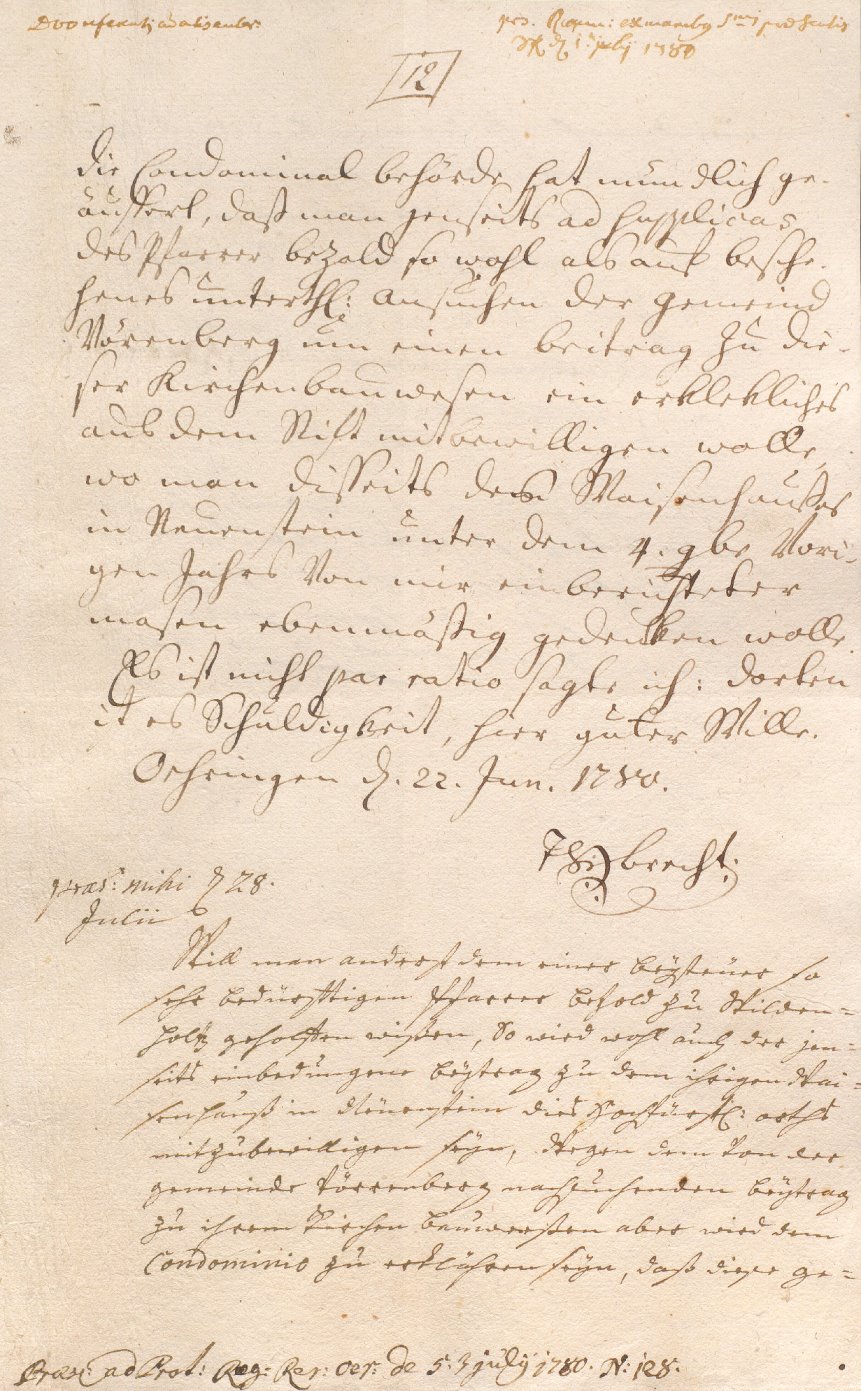 12
die Condominal behörde hat mündlich ge-
äussert, daß man jenseits ad supplicas
des Pfarrer bezold so wohl als auch besche-
henes unterthl: ansuchen der gemeind
Vörrenberg um einen beitrag zu die-
ser Kirchenbauwesen ein erklekliches
aus dem Stift mitbewilligen wolle,
wo man disseits des Waisenhausses
in Neuenstein unter dem 4. 9br Vori-
gen Jahrs von mir einberichteter
masen ebenmäßig gedenken wolle.
Es ist nicht par ratio sagte ich: dorten
ist es Schuldigkeit, hier guter Wille.
Oehringen d. 22. Jun. 1780.
brecht
præs: mihi d 28.
Julii
Will man anderst dem einer beysteuer so
sehr bedürfftigen Pfarrer bezold zu Wilden=
holtz geholffen wißen, So wird wohl auch der jen=
seits einbedungene beytrag zu dem ihrigen Wai=
senhauß in Neuenstein dies Hochfürstl: orths
mitzubewilligen seyn, Wegen dem von der
gemeinde Vörrenberg nachsuchenden beytrag
zu ihrem Kirchen bauweßen aber wird dem
Condominio zu erklähren seyn, daß diese ge=
Præs: ad Prot: Reg: Rer: Oer: de 5. July 1780. N: 128.